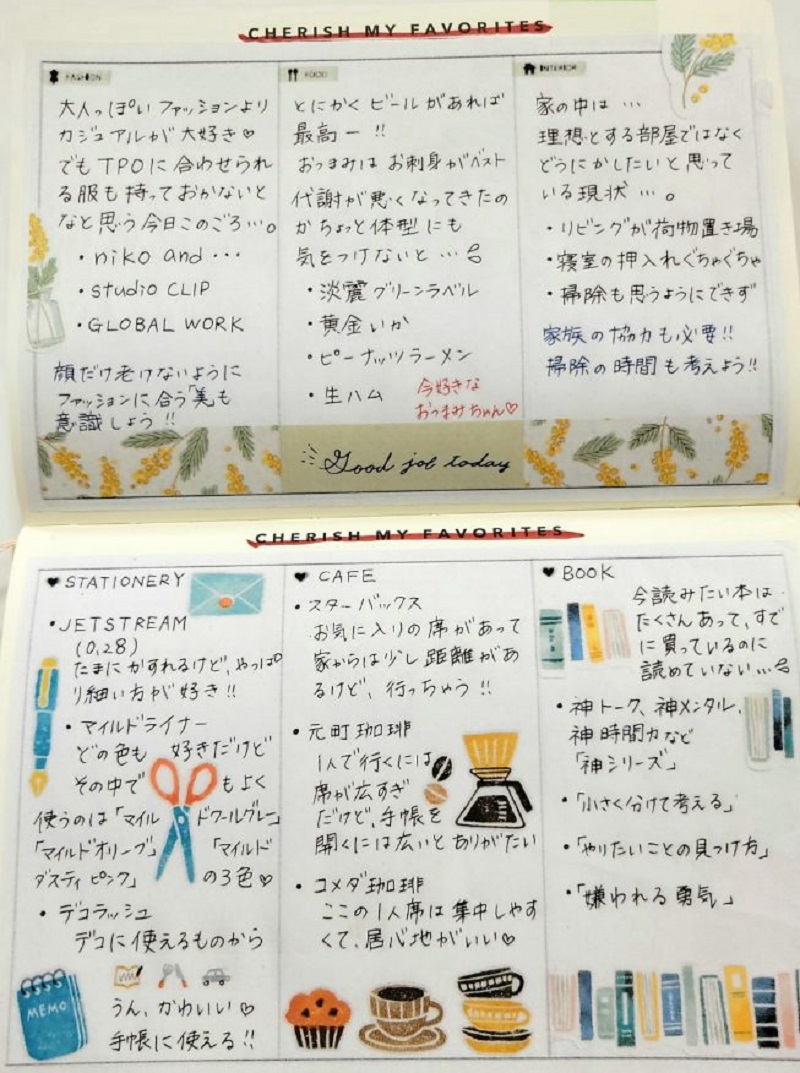 CHERISH MY FAVORITES
FASHION
大人っぽい ファッションより
カジュアルが 大好き♡
でも TPOに 合わせられ
る服も 持っておかないと
なと思う今日このごろ…。
・niko and ...
・studio CLIP
・GLOBAL WORK
顔だけ老けないように
ファッションに合う「美」も
意識しよう!!
FOOD
とにかく ビールがあれば
最高ー!!
おつまみは お刺身がベスト
代謝が悪くなってきたの
か ちょっと体型にも
気をつけないと…
・淡麗グリーンラベル
・黄金いか
・ピーナッツラーメン
・生ハム
今好きな
おつまみちゃん♡
Good job today
INTERIOR
家の中は…
理想とする部屋ではなく
どうにかしたいと思って
いる現状…。
・リビングが荷物置き場
・寝室の押入れぐちゃぐちゃ
・掃除も思うようにできず
家族の協力も必要!!
掃除の時間も考えよう!!
CHERISH MY FAVORITES
♥STATIONERY
・JETSTREAM
(0,28)
たまにかすれるけど、やっぱ
り細い方が好き!!
・マイルドライナー
どの色も 好きだけど
その中で もよく
使うのは「マイル ドクールグレー」
「マイルドオリーブ」 「マイルド
ダスティピンク」 の3色♡
・デコラッシュ
デコに使えるものから
うん、かわいい♡
手帳に使える!!
MEMO
♥ CAFE
・スターバックス
お気に入りの席があって
家からは少し距離があ
るけど、行っちゃう!!
・元町珈琲
1人で行くには
席が広すぎ
だけど、手帳を
開くには広いとありがたい
・コメダ珈琲
ここの1人席は集中しやす
くて、居心地がいい♡
♥BOOK
今読みたい本は
たくさんあって、すで
に買っているのに
読めていない…
・神トーク、神メンタル、
神時間力など
「神シリーズ」
・「小さく分けて考える」
・「やりたいことの見つけ方」
・「嫌われる勇気」